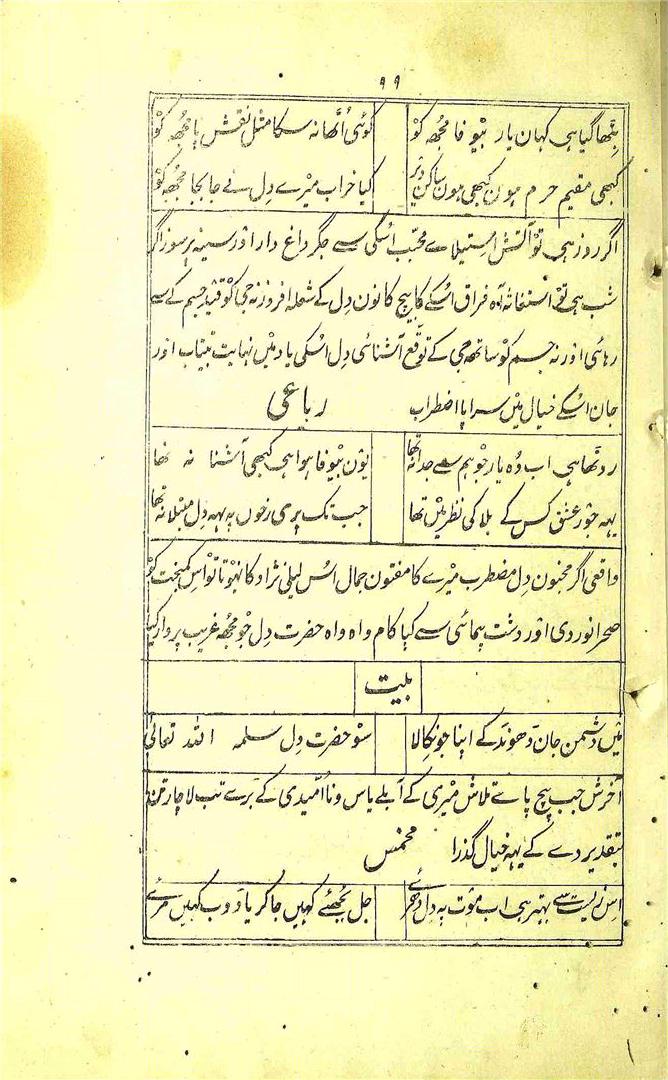 ۹۹
بٹھا گیا ہی کہان یار بیوفا مجھ کو کوئی اُٹھا نہ سکا مثل نقش پا مجھ کو
کبھی مقیم حرم ہون کبھی ہون ساکن دیر کیا خراب میرے دِل نے جا بجا مجھ کو
اگر روز ہی تو آتش استیلاے محبت اسکی سے جگر داغ دار اور سینہ پر سوز اگر
شب ہی تو آہ فراق اُسکے کا بیچ کانون دِل کے شعلہ افروز نہ جی کو قید جسم کے سے
رہائی اور نہ جسم کو ساتھ جی کے توقع آشنائی دِل اسکی یاد مین نہایت بیتاب اور
جان اسکے خیال مین سراپا اضطراب رباعی
روٹھا ہی اب وُہ یار جو ہم سے جدا نہ تھا یون بیوفا ہوا ہی کبھی آشنا نہ تھا
یہہ جور عشق کس کے بلا کی نظر مین تھا جب تک پری رخون پہ یہہ دِل مبتلا نہ تھا
واقعی اگر مجنون دِل مضطرب میرے کا مفتون جمال اُس لیلیٰ نژاد کا نہوتا تو اس کمبخت کو
صحرا نوردی اور دشت پیمائی سے کیا کام واہ واہ حضرت دِل جو مجھ غریب پر وار کیا
بیت
مین دشمن جان ڈھونڈ کے اپنا جو نکالا سو حضرت دِل سلمہ اللہ تعالیٰ
آخرش جب بیچ پاے تلاش میری کے آبلے یاس و نا اُمیدی کے پڑے تب لاچار تن
بتقدیر دے کے یہہ خیال گذرا مخمس
اس زیست سے بہتر ہی اب موت پہ دِل دھرئے جل بُجھئے کہین جا کر یا ڈوب کہین مرئے